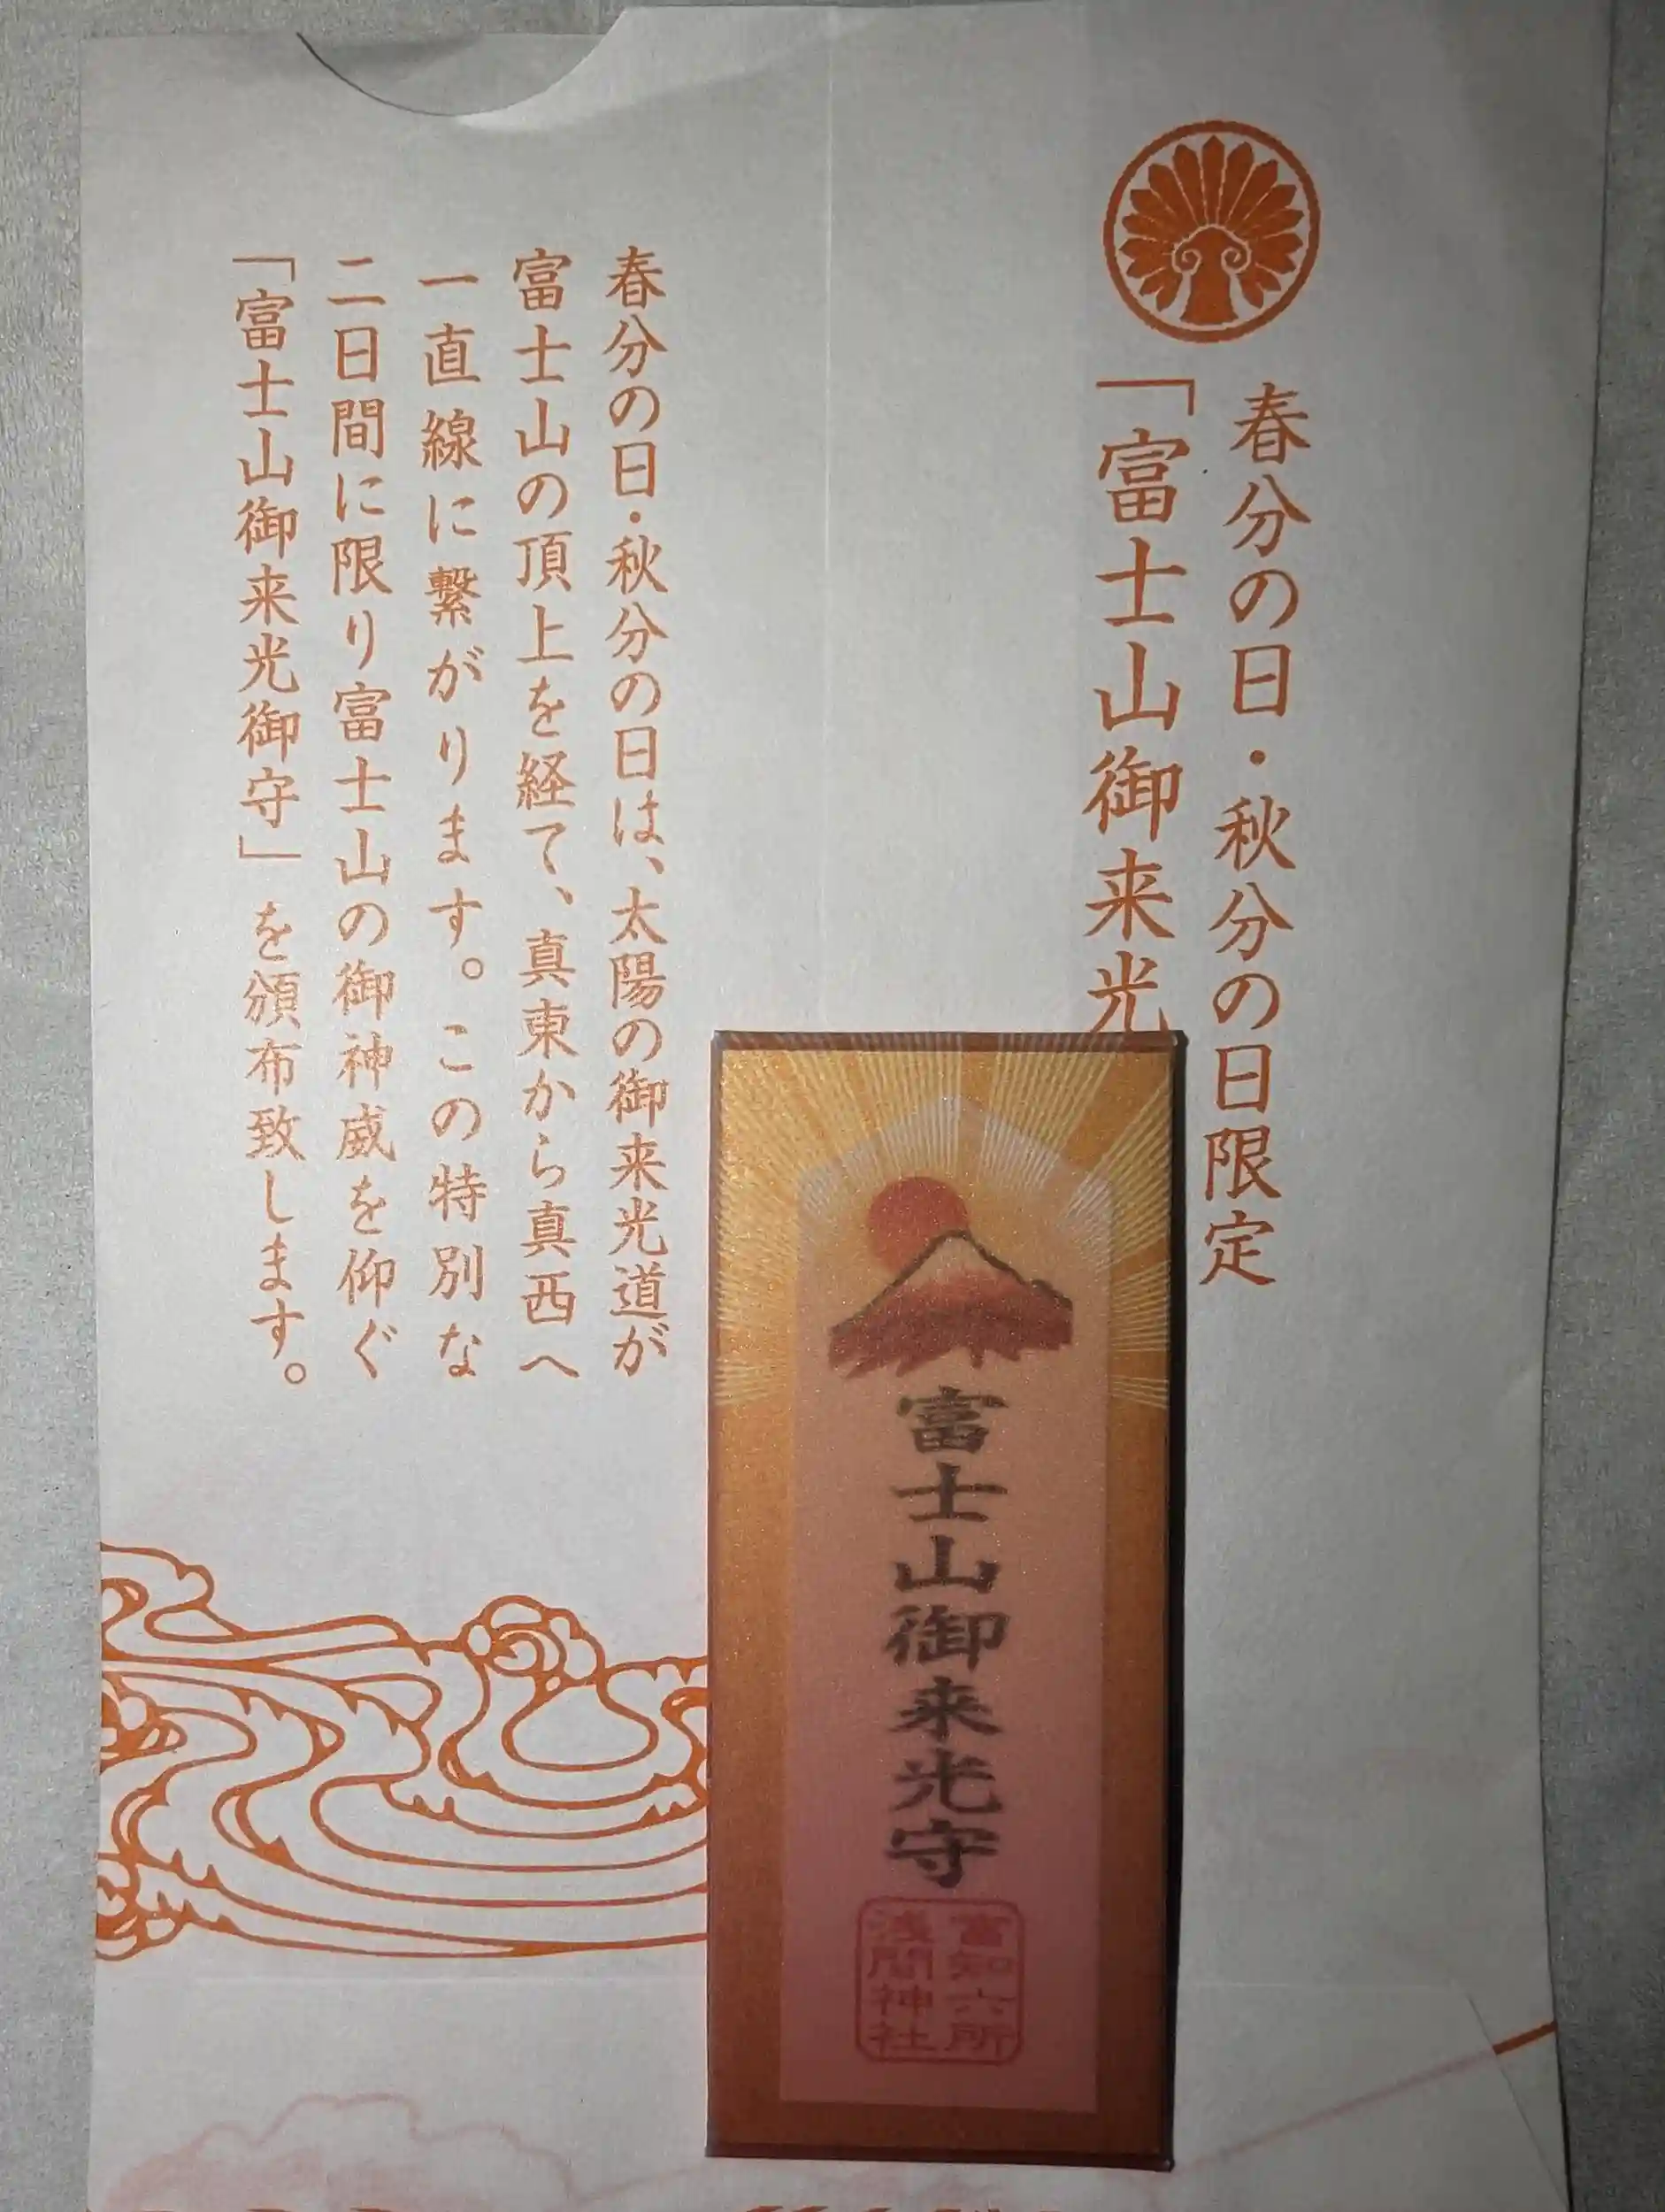 春分の日・秋分の日限定
「富士山御来光
春分の日・秋分の日は、太陽の御来光道が
富士山の頂上を経て、真東から真西へ
一直線に繋がります。この特別な
二日間に限り富士山の御神威を仰ぐ
「富士山御来光御守」を頒布致します。
富士山御来光守
富知六所
浅間神社